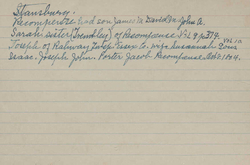 Stansbury.
Recompense had son James M David D & John A.
Sarah sister (Trembley) of Recompense S L 9 p 379.
Joseph of Rahway Essex Co. wife Susannah Sons Vol 10
Isaac. Joseph John. Porter Jacob Recompense 1804.